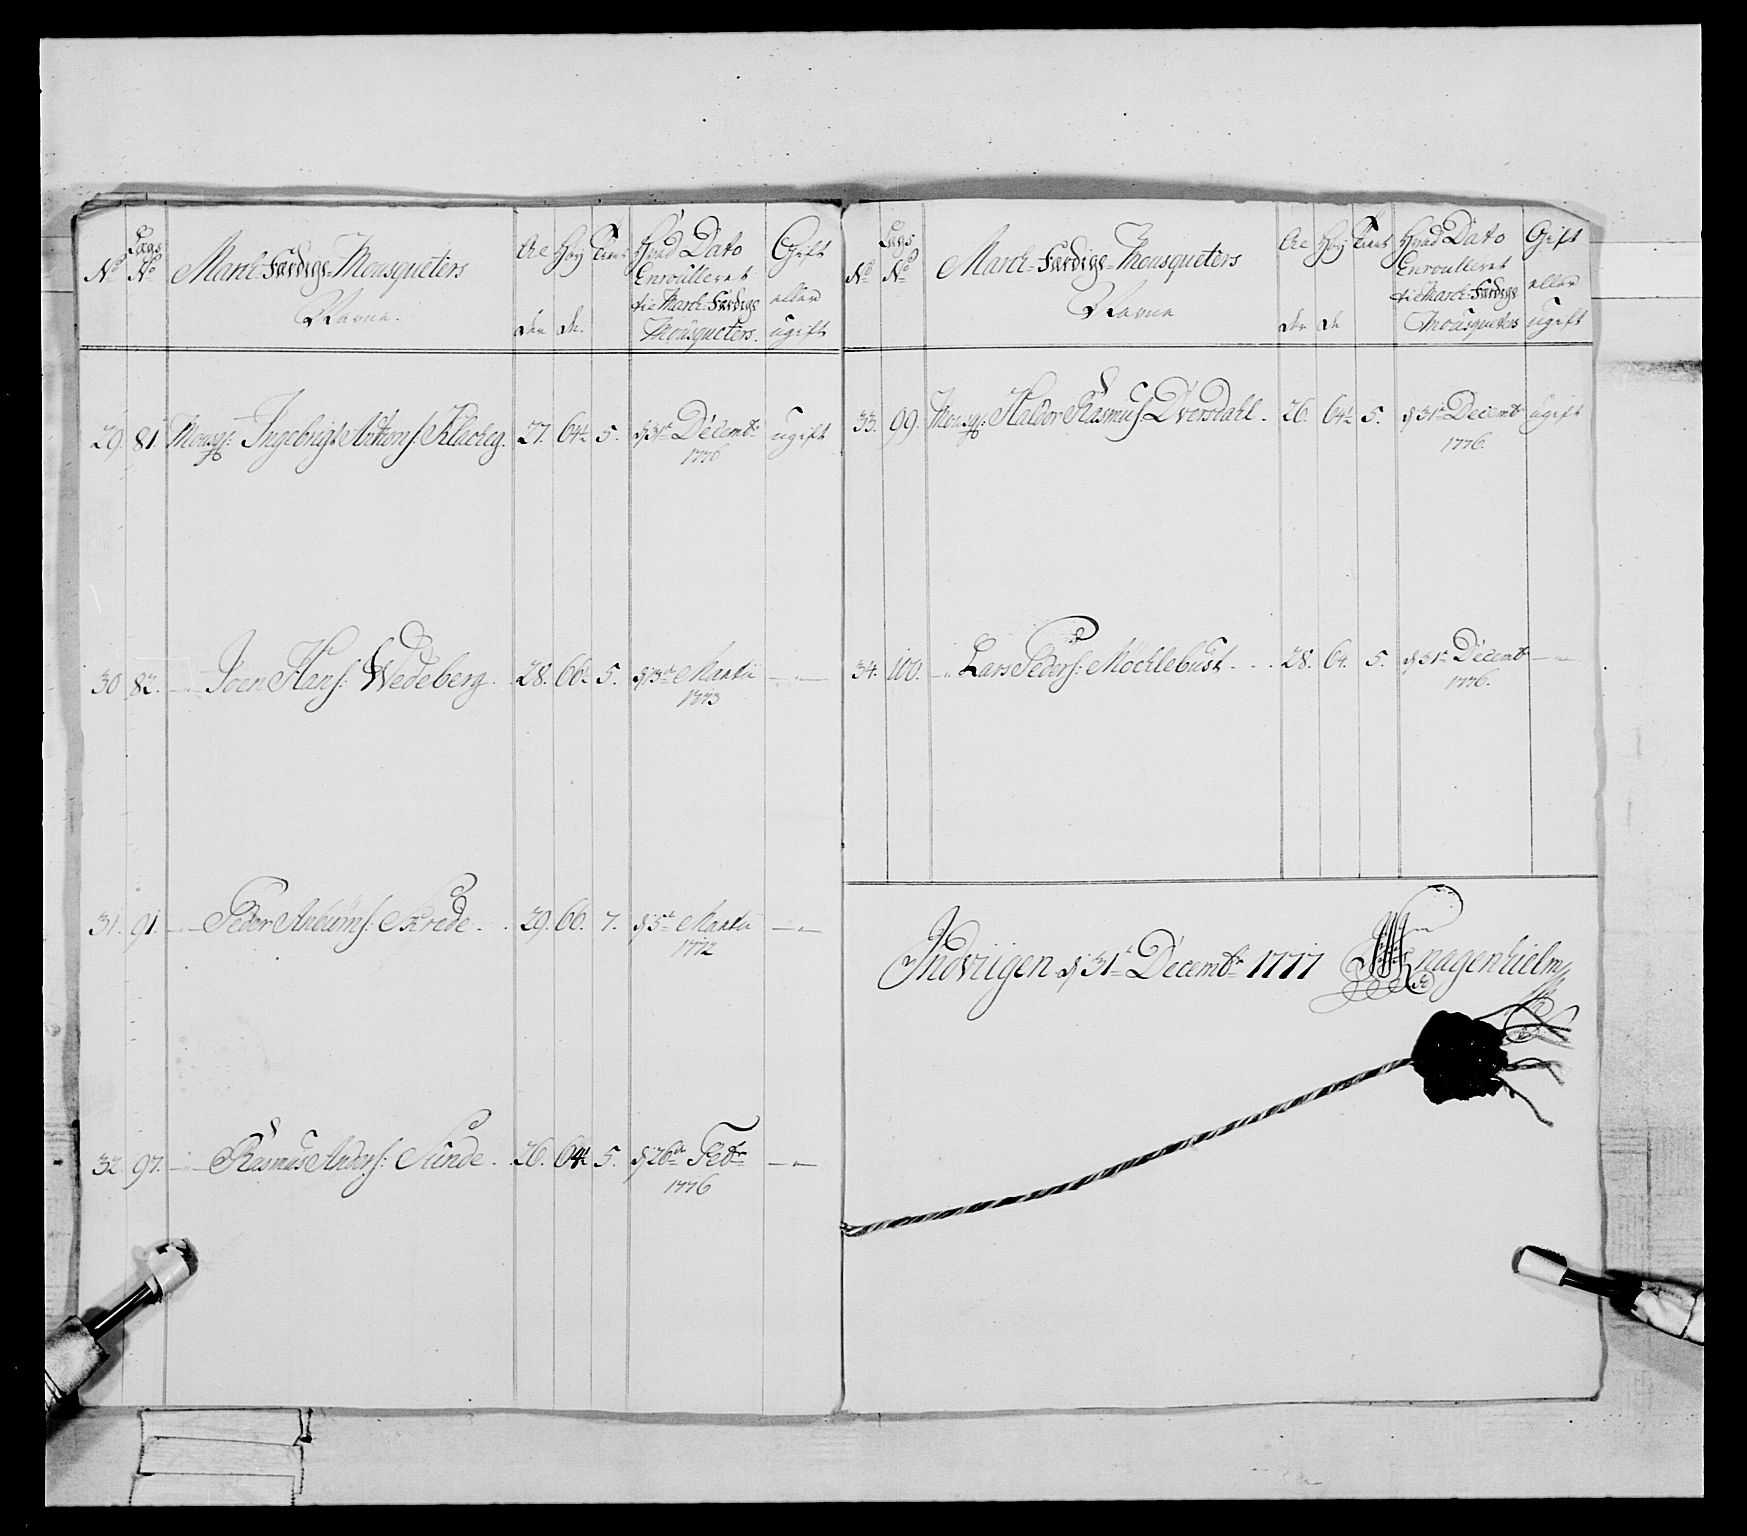 No
Lægs No
March-Færdige-Mousqueters
Navne.
Al
der
Høy
de.
Tient
Hvad Dato
Enroulleret
til March-Færdige
Mousqueters.
Gift
eller
ugift
29. 81. Mousq: Ingebrigt Anthons: 27. 64½ 5. d 31te Decembr ugift
1776
30 82. —"— Joen Hans: Wedeberg. 28. 66½ 5. d 13de Martii —"—
1773
31. 91. —"— Peder Anbiørns: Skrede. 29. 66. 7. d 5te Martii —"—
1772
32. 97. —"— Rasmus Anders: Sunde. 26. 64½ 5. d 26de Febr —"—
1776
No
Lægs No
March-Færdige-Mousqueters
Navne
Al
der
Høy
de
Tient
Hvad Dato
Enroulleret
til March-Færdige
Mousqueters
Gift
eller
ugift
33. 99. Mousq: Haldor Rasmus: Dversdahl. 26. 64½ 5. d 31te Decembr ugift
1776.
34. 100. —"— Lars Peders: Møchlebust. 28. 64. 5. d 31te Decembr —"—
1776.
Indviigen d 31te Decembr 1777 Knagenhielm